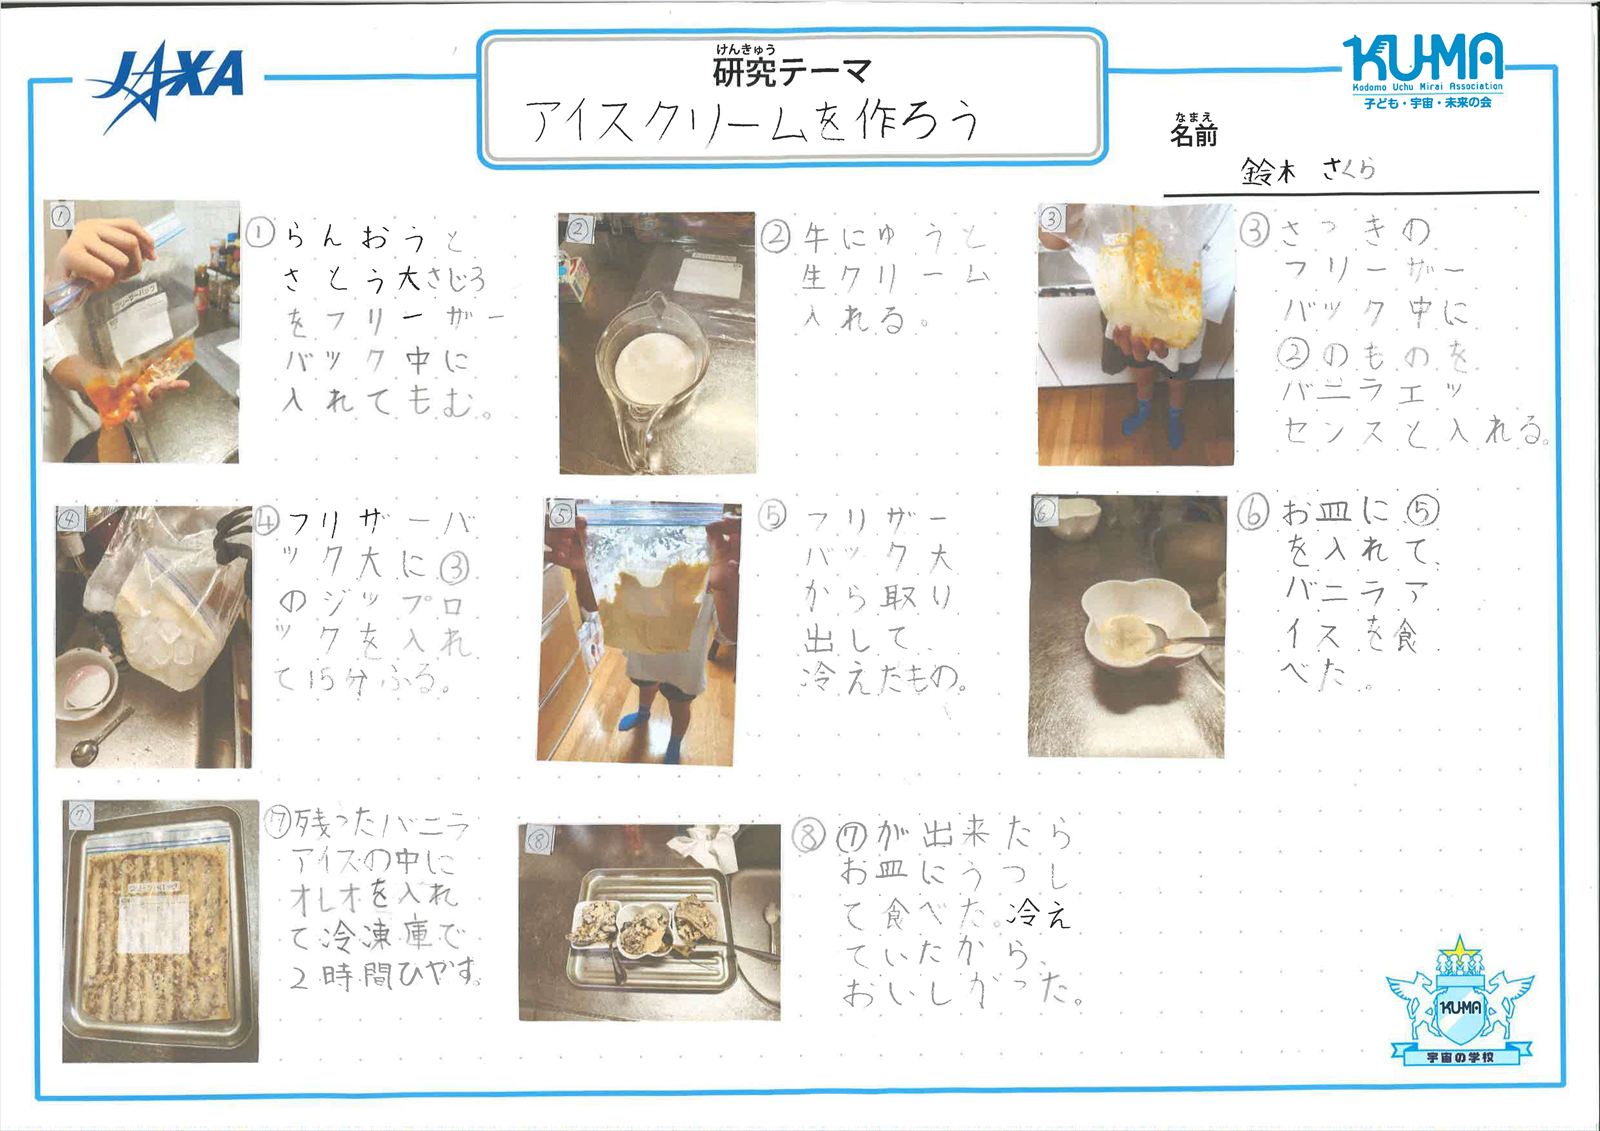 JAXA
けんきゅう
研究テーマ
アイスクリームを作ろう
KUMA
Kodomo Uchu Mirai Association
子ども・宇宙・未来の会
なまえ
名前
鈴木 さくら
①
①らんおうと
さとう大さじ3
をフリーザー
バック中に
入れてもむ。
②
②牛にゅうと
生クリーム
入れる。
③
③さっきの
フリーザー
バック中に
②のものを
バニラエッ
センスと入れる。
④
④フリザーバ
ック大に③
のジップロ
ックを入れ
て15分ふる。
⑤
⑤フリザー
バック大
から取り
出して、
冷えたもの。
⑥
⑥お皿に⑤
を入れて、
バニラア
イスを食
べた。
⑦
⑦残ったバニラ
アイスの中に
オレオを入れ
て冷凍庫で
2時間ひやす。
⑧
⑧⑦が出来たら
お皿にうつし
て食べた。冷え
ていたから、
おいしかった。
KUMA
宇宙の学校